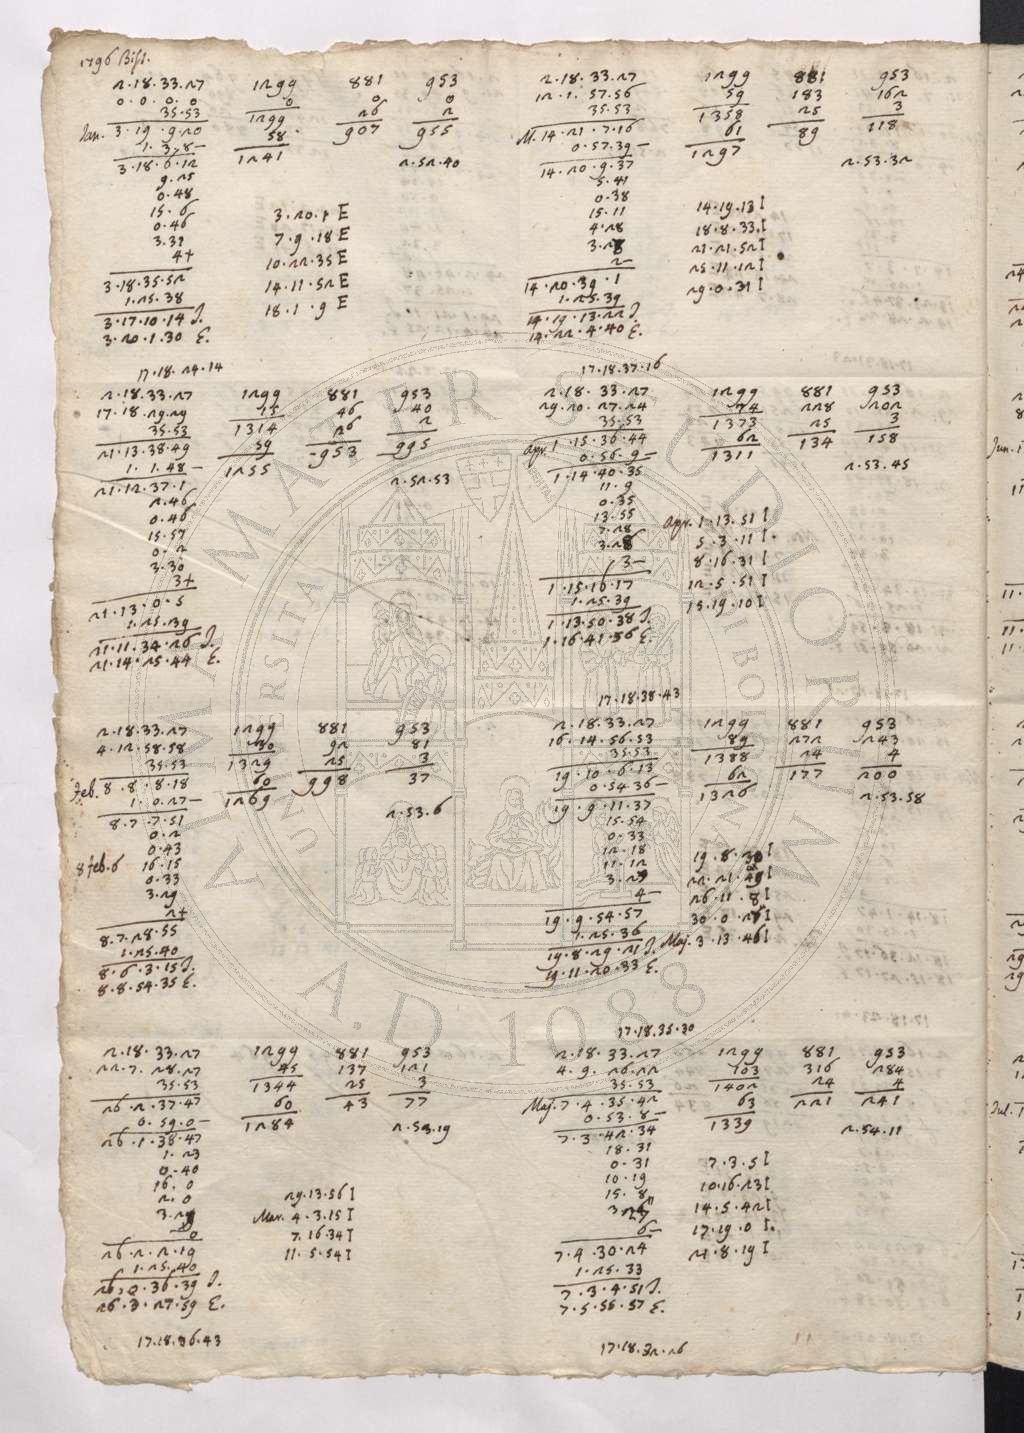 1796 Bist.
2.18.33.27 1299 881 953
0.0.0.0 0 0 0
35.53 1299 26 2
Jan. 3.19.9.20 58 907 955
1.3.8- 1241
3.18.6.12 2.52.40
9.25
0.48
15.6
0.46 3.20.1 E
3.31 7.9.18 E
4+ 10.22.35 E
3.18.35.52 14.11.52 E
1.25.38 18.1.9 E
3.17.10.14 J.
3.20.1.30 E.
17.18.24.14
2.18.33.27 1299 881 953
17.18.29.29 15 46 40
35.53 1314 26 2
21.13.38.49 59 953 995
1.1.48- 1255
21.12.37.1 2.52.53
2.46
0.46
15.57
0.2
3.30
3+
21.13.0.5
1.25.39
21.11.34.26 J.
21.14.25.44 E.
2.18.33.27 1299 881 953
4.12.58.58 30 92 81
35.53 1329 25 3
Feb. 8.8.8.18 60 998 37
1.0.27- 1269
8.7.7.51 2.53.6
0.2
0.43
8 feb.6 16.15
0.33
3.29
2+
8.7.28.55
1.25.40
8.6.3.15 J.
8.8.54.35 E.
2.18.33.27 1299 881 953
22.7.28.27 45 137 121
35.53 1344 25 3
26.2.37.47 60 43 77
0.59.0- 1284
26.1.38.47 2.53.19
1.23
0.40
16.0
2.0 29.13.56 I
3.29 Mar. 4.3.15 I
0 7.16.34 I
26.2.2.19 11.5.54 I
1.25.40
26.0.36.39 J.
26.3.27.59 E.
17.18.36.43
2.18.33.27 1299 881 953
12.1.57.56 59 183 162
35.53 1358 25 3
M. 14.21.7.16 61 89 118
0.57.39- 1297
14.20.9.37 2.53.32
5.41
0.38
15.11 14.19.13 I
4.28 18.8.33 I
3.28 21.21.52 I
2- 25.11.12 I
14.20.39.1 29.0.31 I
1.25.39
14.19.13.22 J.
14.22.4.40 E.
17.18.37.16
2.18.33.27 1299 881 953
29.20.27.24 74 228 202
35.53 1373 25 3
Apr. 1.15.36.44 62 134 158
0.56.9- 1311
1.14.40.35 2.53.45
11.9
0.35
13.55 Apr. 1.13.51 I
7.28 5.3.11 I
3.28 8.16.31 I
3- 12.5.51 I
1.15.16.17 15.19.10 I
1.25.39
1.13.50.38 J.
1.16.41.56 E.
17.18.38.43
2.18.33.27 1299 881 953
16.14.56.53 89 272 243
35.53 1388 24 4
19.10.6.13 62 177 200
0.54.36- 1326
19.9.11.37 2.53.58
15.54
0.33
12.18 19.8.30 I
11.12 22.21.49 I
3.29 26.11.8 I
4- 30.0.27 I
19.9.54.57 Maj. 3.13.46 I
1.25.36
19.8.29.21 J.
19.11.20.33 E.
17.18.35.30
2.18.33.27 1299 881 953
4.9.26.22 103 316 284
35.53 1402 24 4
Maj. 7.4.35.42 63 221 241
0.53.8- 1339
7.3.42.34 2.54.11
18.31
0.31 7.3.5 I
10.19 10.16.23 I
15.8 14.5.42 I
17.19.0 I
6- 21.8.19 I
7.4.30.24
1.25.33
7.3.4.51 J.
7.5.55.57 E.
17.18.32.26
ALMA MATER STUDIORUM
UNIVERSITÀ DI BOLOGNA
A.D. 1088